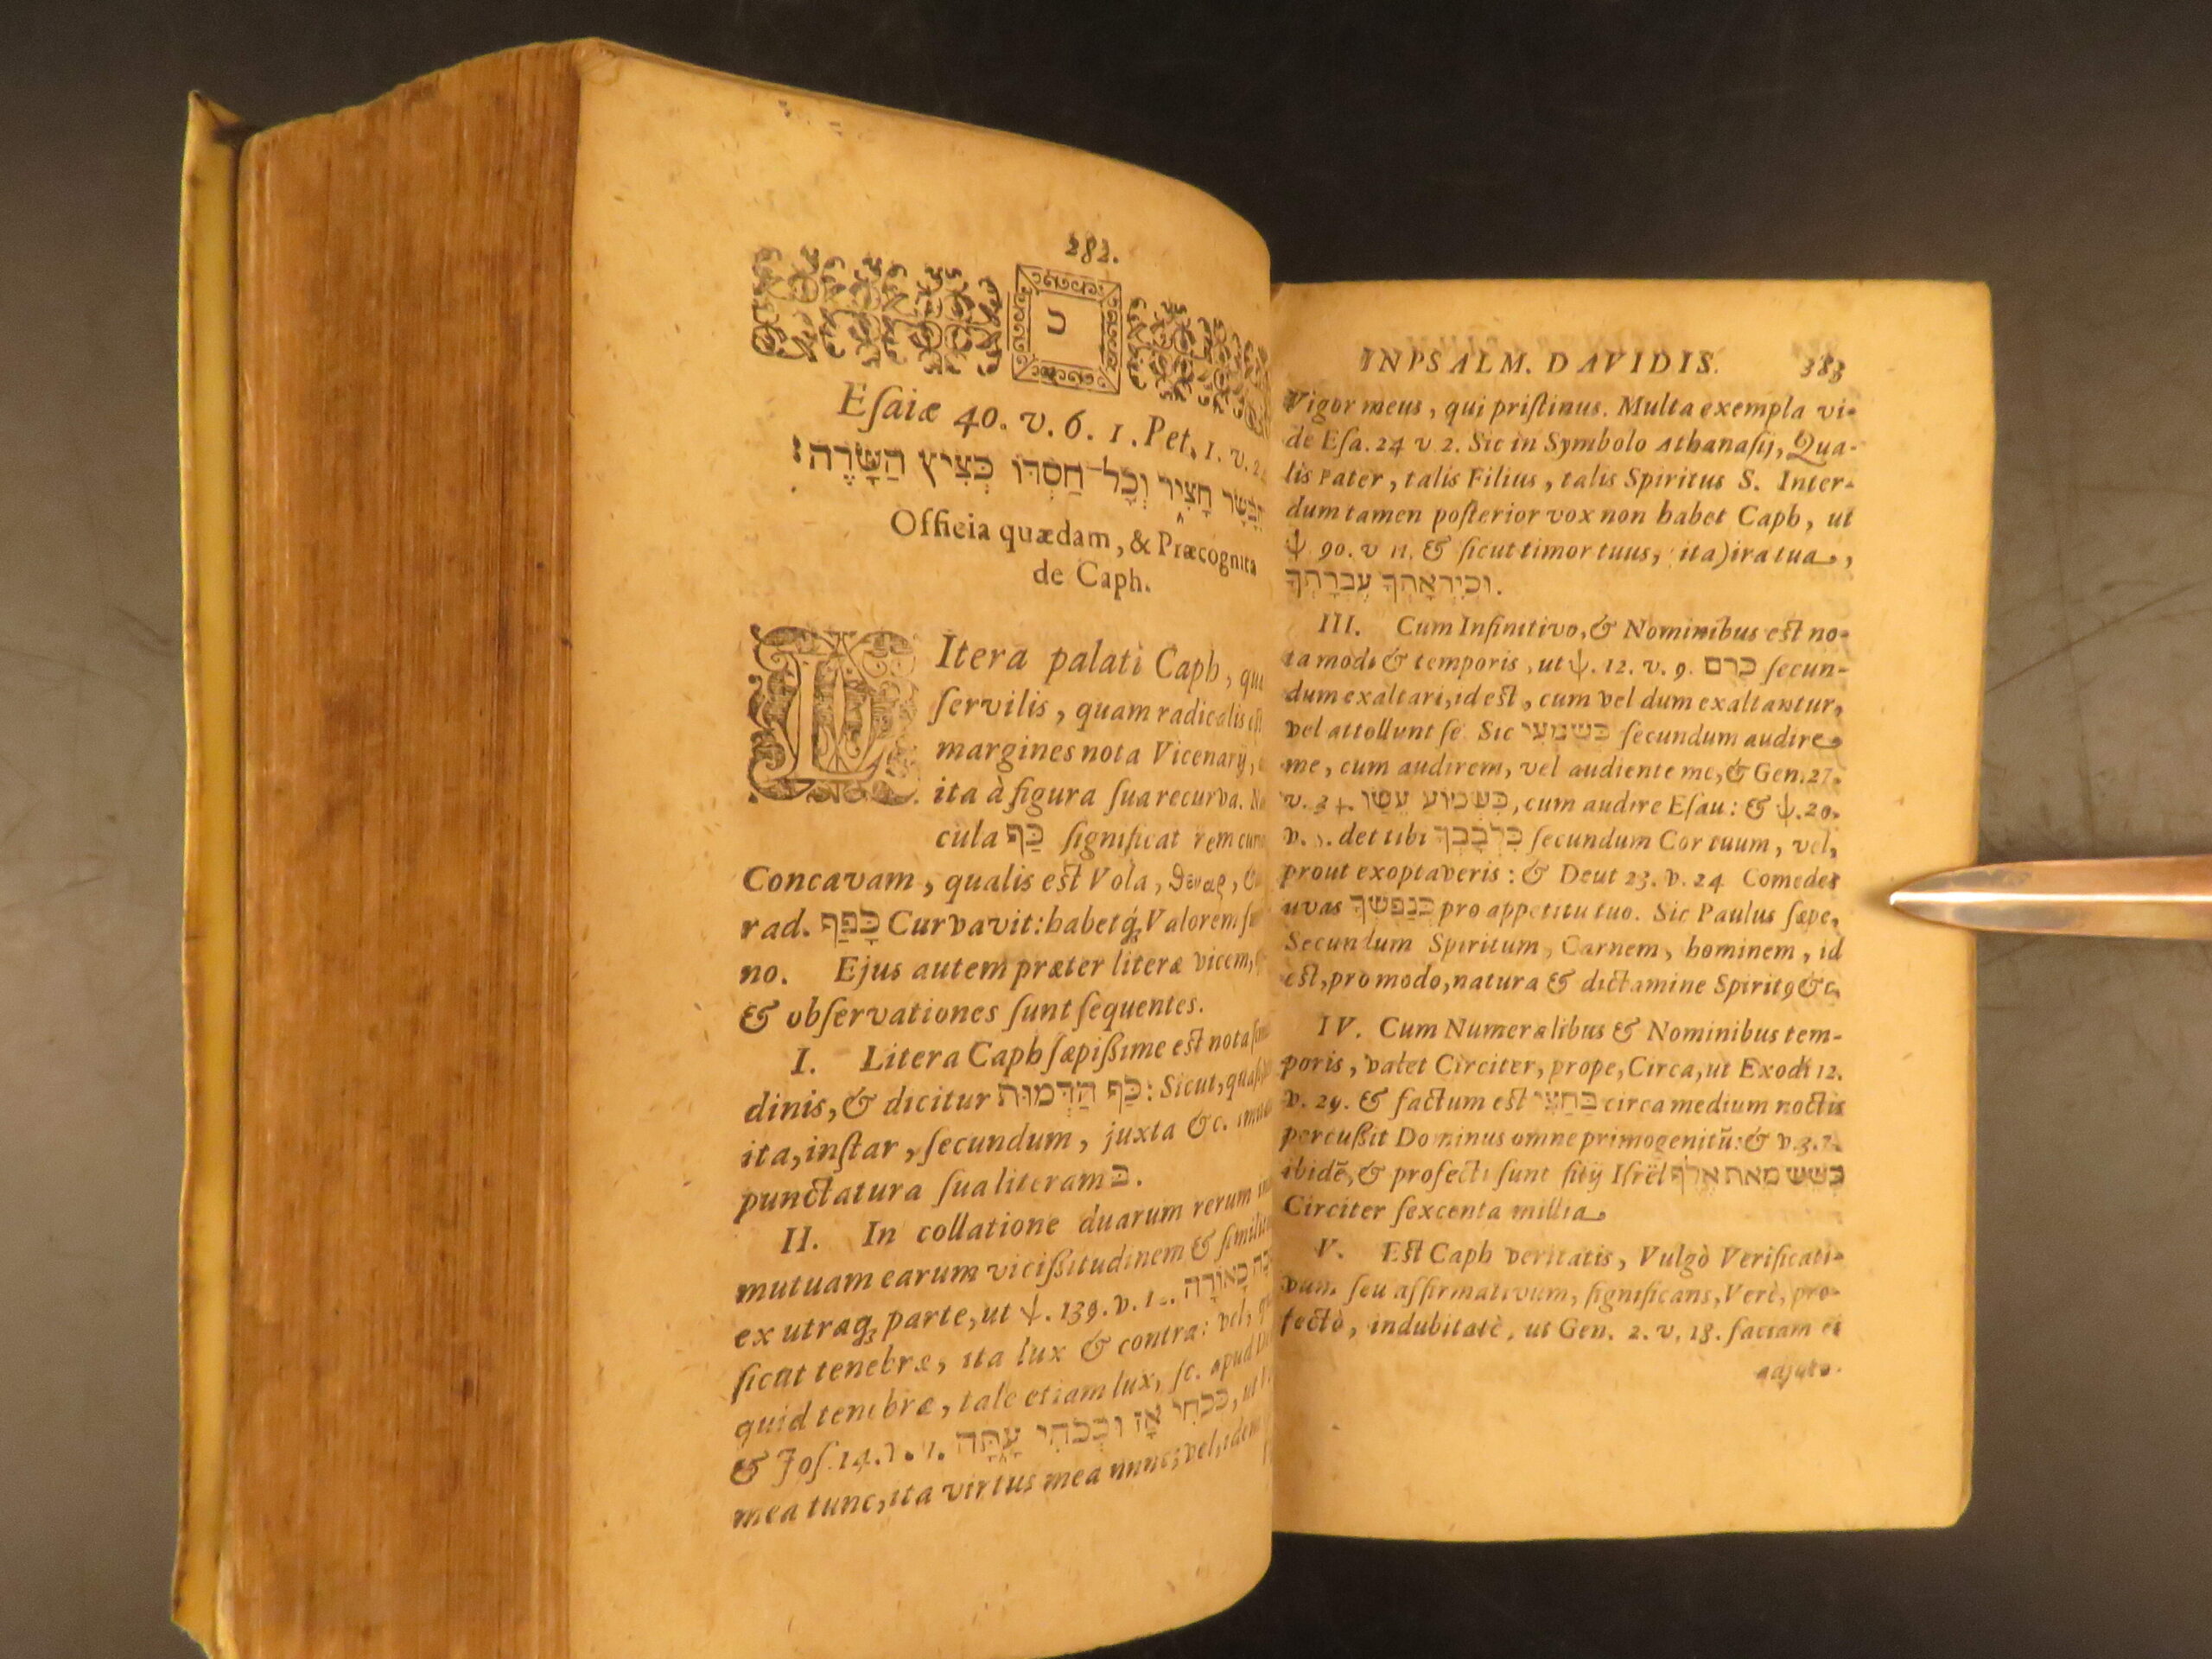 282.
כ
Eſaiæ 40. v. 6. 1. Pet. 1. v.
הַבָּשָׂר חָצִיר וְכָל־חַסְדּוֹ כְּצִיץ הַשָּׂדֶה׃
Officia quædam, & Præcognita
de Caph.
LItera palati Caph,
ſervilis, quam radicalis
margines nota Vicenarij,
ita à figura ſua recurva.
cula כַּף ſignificat rem
Concavam, qualis eſt Vola,
rad. כָּפַף Curvavit: habetq́; Valorem
no. Ejus autem præter literæ vicem,
& obſervationes ſunt ſequentes.
I. Litera Caph ſæpiſſime eſt nota
dinis, & dicitur כַּף הַדְּמוּת: Sicut,
ita, inſtar, ſecundum, juxta &c.
punctatura ſua literam כּ.
II. In collatione duarum rerum
mutuam earum viciſſitudinem &
ex utraq; parte, ut ψ. 139. v. כָּאוֹרָה
ſicut tenebræ, ita lux & contra: vel,
quid tenebræ, tale etiam lux, ſc. apud
& Joſ. 14. v. כְּכֹחִי אָז וּכְכֹחִי עָתָּה,
mea tunc, ita virtus mea nunc; vel, idem
IN PSALM. DAVIDIS. 383
Vigor meus, qui priſtinus. Multa exempla vi-
de Eſa. 24 v 2. Sic in Symbolo Athanaſij, Qua-
lis Pater, talis Filius, talis Spiritus S. Inter-
dum tamen poſterior vox non habet Caph, ut
ψ 90. v 11. & ſicut timor tuus, ita) ira tua,
וּכְיִרְאָתְךָ עֶבְרָתֶךָ.
III. Cum Infinitivo, & Nominibus eſt no-
ta modi & temporis, ut ψ. 12. v. 9. כְּרֻם ſecun-
dum exaltari, id eſt, cum vel dum exaltantur,
vel attollunt ſe. Sic כְּשָׁמְעִי ſecundum audire
me, cum audirem, vel audiente me, & Gen. 27.
v. 34. כִּשְׁמֹעַ עֵשָׂו, cum audire Eſau: & ψ. 20.
v. det tibi כִלְבָבֶךָ ſecundum Cor tuum, vel,
prout exoptaveris: & Deut 23. v. 24 Comedes
uvas כְּנַפְשְׁךָ pro appetitu tuo. Sic Paulus ſæpe,
Secundum Spiritum, Carnem, hominem, id
eſt, pro modo, natura & dictamine Spiritꝰ &c.
IV. Cum Numeralibus & Nominibus tem-
poris, valet Circiter, prope, Circa, ut Exodi 12.
v. 29. & factum eſt בַּחֲצִי circa medium noctis
percuſſit Dominus omne primogenitū: & v. 37.
ibidē, & profecti ſunt filij Iſrël כְּשֵׁשׁ מֵאת אֶלֶף
Circiter ſexcenta millia.
V. Eſt Caph veritatis, Vulgò Verificati-
vum ſeu affirmativum, ſignificans, Verè, pro-
fectò, indubitatè, ut Gen. 2. v. 18. faciam ei
adjuto-